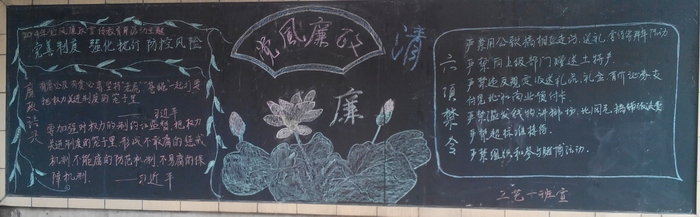 2014年党风廉政宣传教育活动主题
完善制度 强化执行 防控风险
廉政论共
把权力关进制度的笼子里
习近平
要加强对权力的制约和监督，把权力
关进制度的笼子里，形成不敢腐的惩戒
机制、不能腐的防范机制、不易腐的保
障机制。
——习近平
党风廉政
清
廉
六项禁令
严禁用公款搞相互走访、送礼、宴请等拜年活动
严禁向上级部门赠送土特产
严禁违反规定收送礼品、礼金、有价证券、支
付凭证和商业预付卡
严禁滥发钱物，讲排场、比阔气，搞铺张浪费
严禁超标准接待
严禁组织和参与赌博活动。